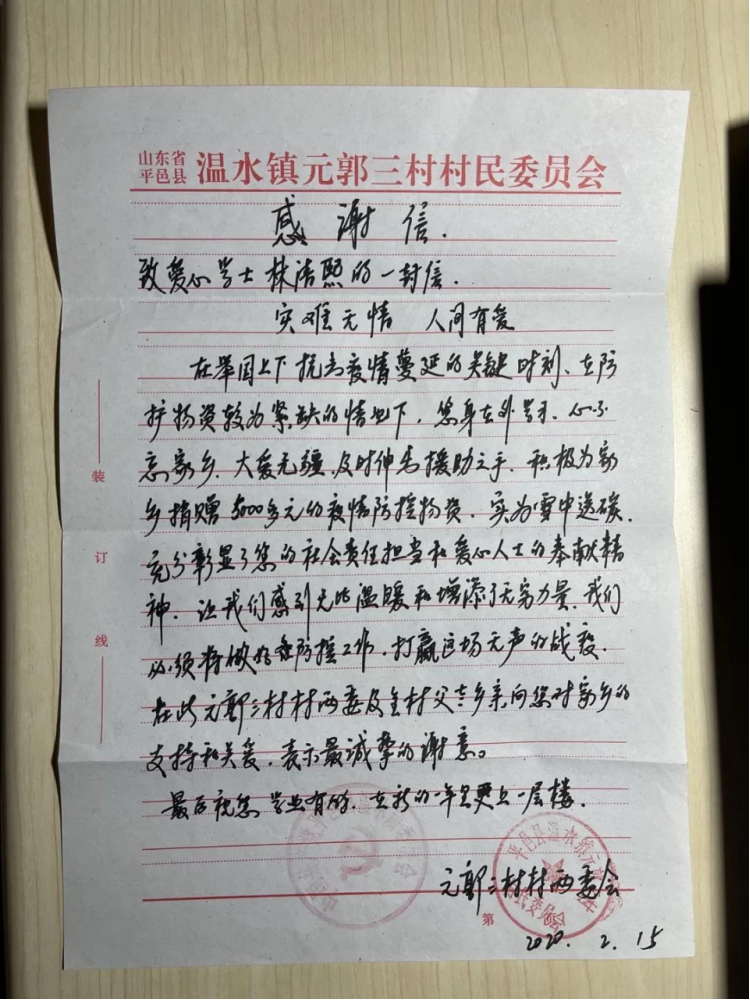 山东省
平邑县
温水镇元郭三村村民委员会
感谢信.
致爱心学士林浩熙的一封信.
灾难无情 人间有爱
在举国上下抗击疫情蔓延的关键时刻、在防
护物资较为紧缺的情况下,您身在外学习,心不
忘家乡.大爱无疆,及时伸出援助之手.积极为家
乡捐赠5000多元的疫情防控物资,实为雪中送碳.
充分彰显了您的社会责任担当和爱心人士的奉献精
神.让我们感到无比温暖和增添了无穷力量,我们
必须将做好防控工作,打赢这场无声的战役.
在此元郭三村村两委及全村父老乡亲,向您对家乡的
支持和关爱,表示最诚挚的谢意。
最后祝您学业有的.在新的一年里更上一层楼.
元郭三村村两委会
2020.2.15
装
订
线
第
平邑县温水镇元
民委员会